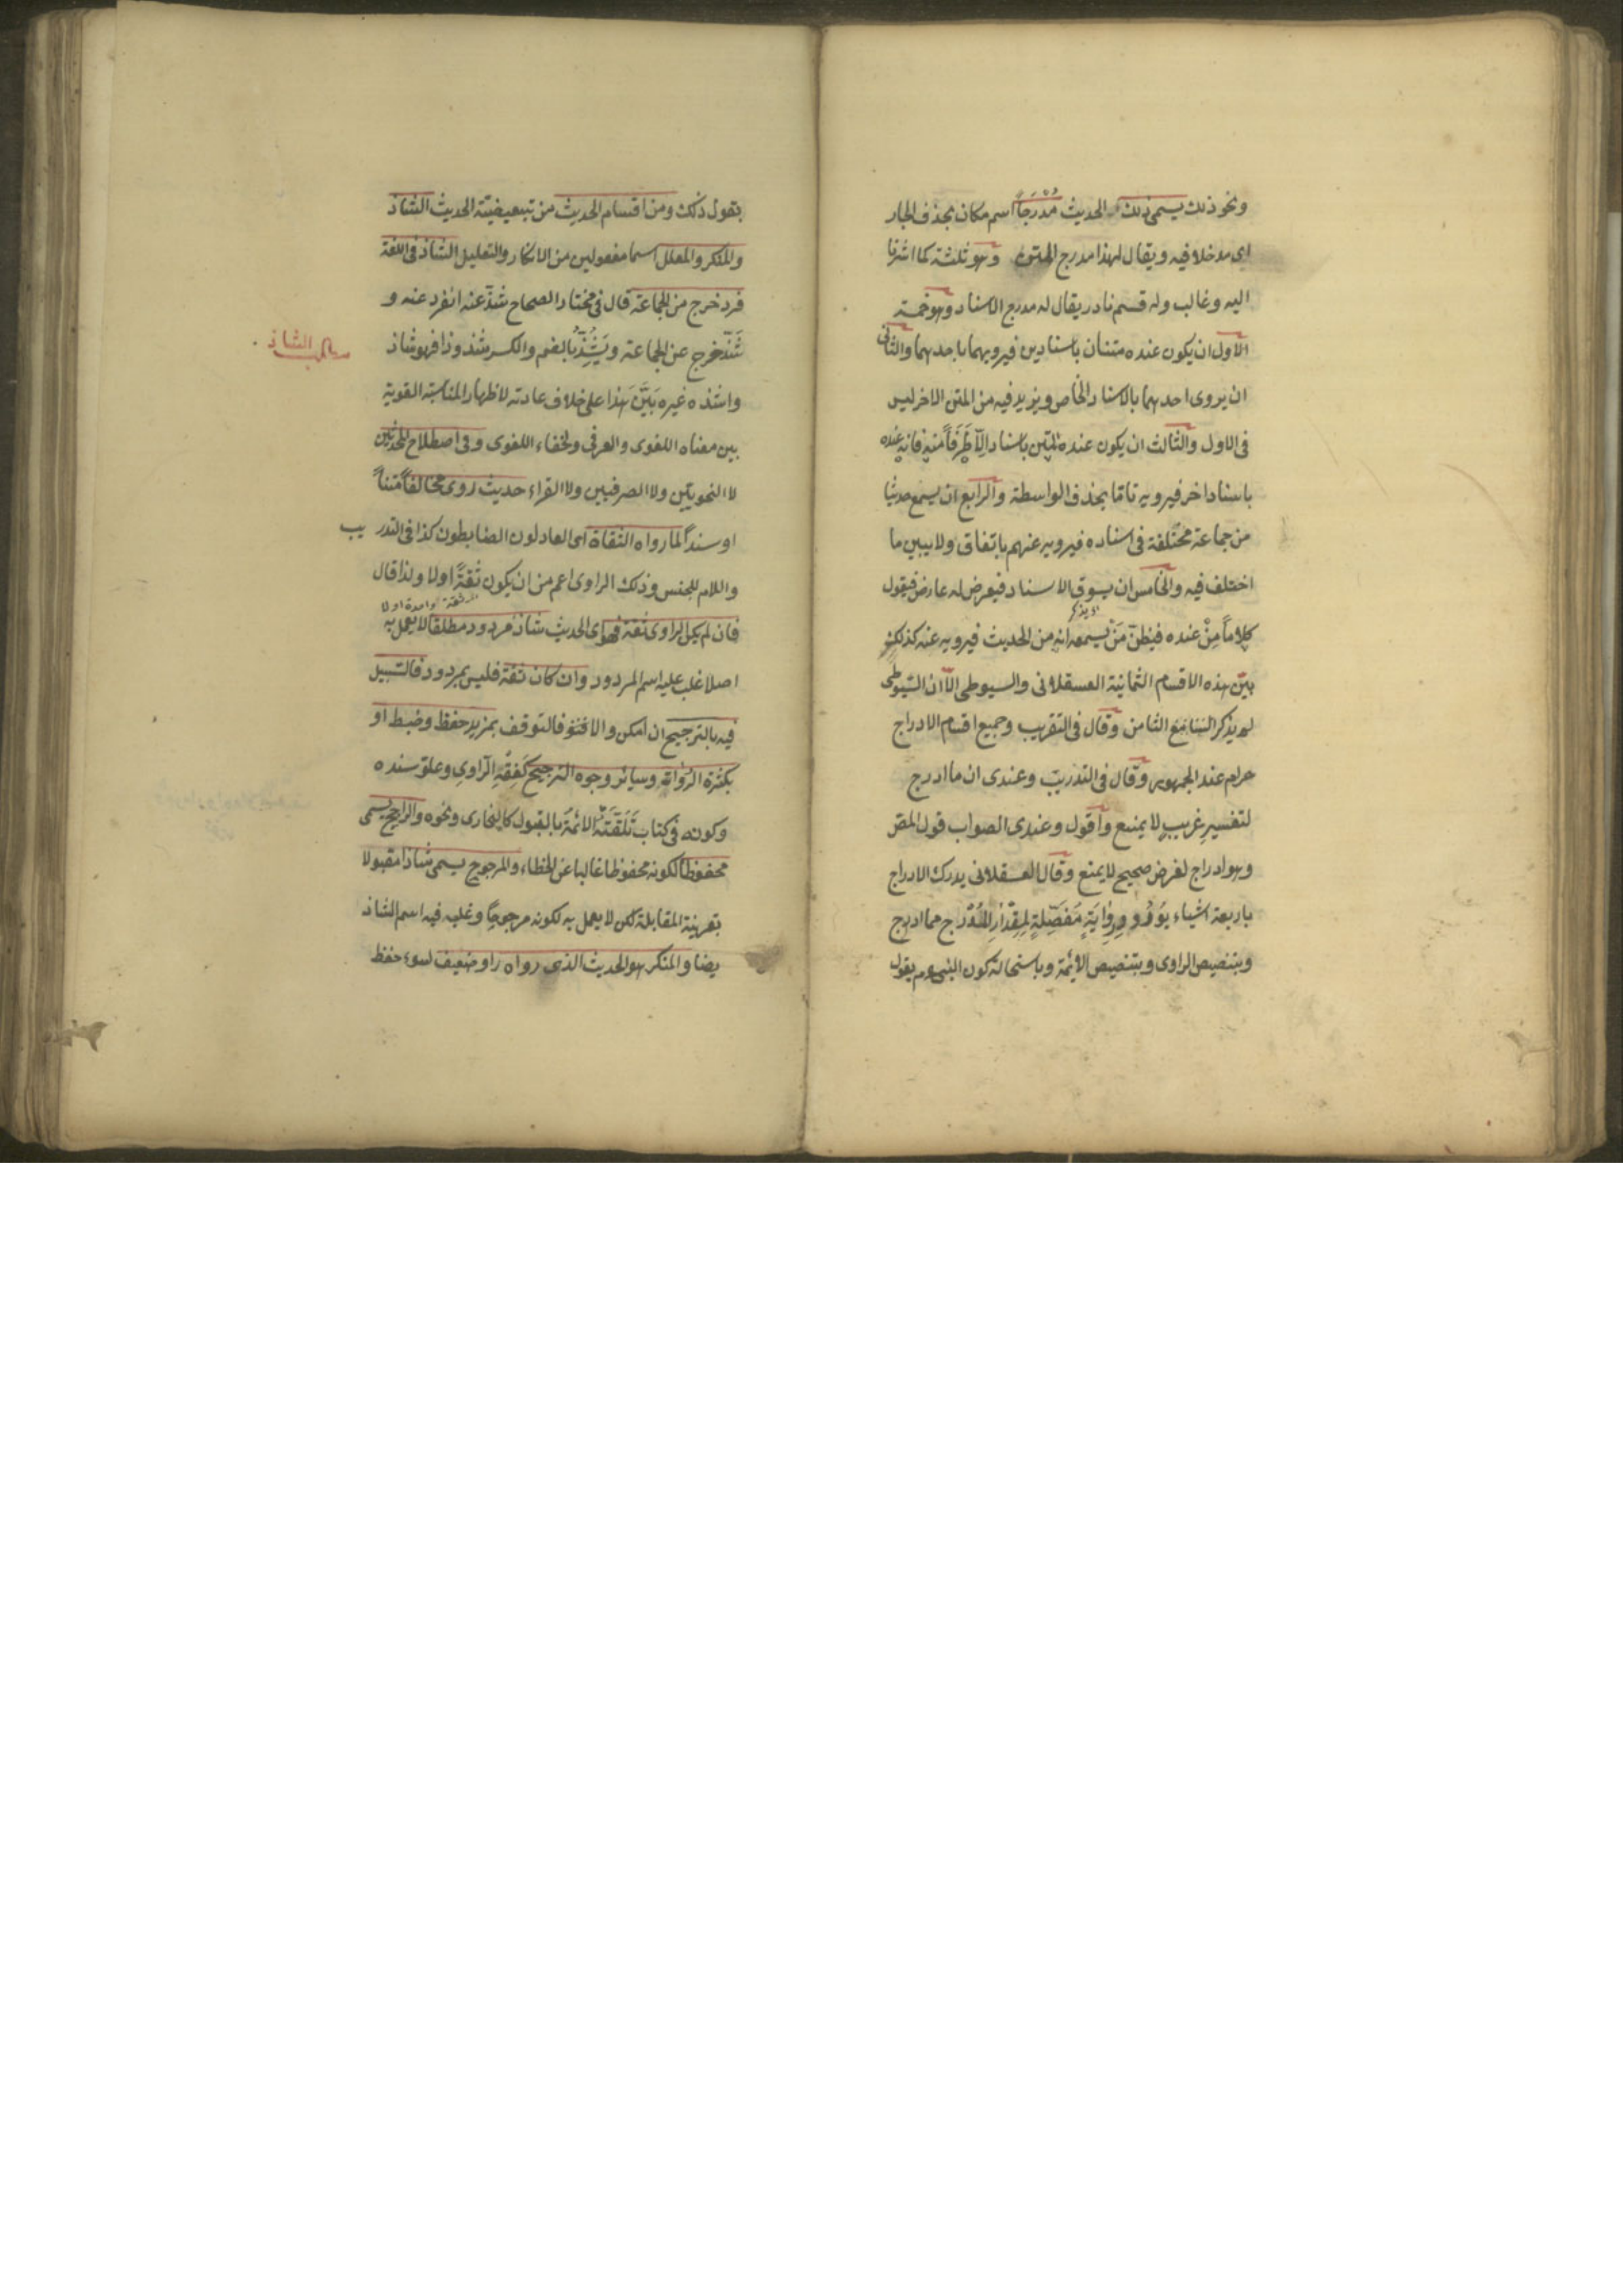 ونحو ذلك يسمى ذلك الحديث مُدْرَجًا اسم مكان بحذف الجار
اى مدخلا فيه ويقال لهذا مدرج المتون وهو ثلثة كما اشرنا
اليه وغالب وله قسم نادر يقال له مدرج الاسناد وهو خمسة
الاول ان يكون عنده متنان باسنادين فيرويهما باحدهما والثانى
ان يروى احدهما بالاسناد الخاص ويزيد فيه من المتن الاخر ليس
فى الاول والثالث ان يكون عنده المتن باسناد الّا طَرَفاً منه فانه عنده
باسناد اخر فيرويه تاما بحذف الواسطة والرابع ان يسمع حديثا
من جماعة مختلفة فى اسناده فيرويه عنهم باتفاق ولا يبين ما
اختلف فيه والخامس ان يسوق الاسناد فيعرض له عارض فيقول
كلاماً مِنْ عنده فيظنّ مَنْ يسمعه انه من الحديث فيرويه عنه كذلك
بيّن هذه الاقسام الثمانية العسقلانى والسيوطى الّا ان السّيوطى
لم يذكر السابع الثامن وقال فى التقريب وجميع اقسام الادراج
حرام عند الجمهور وقال فى التدريب وعندى ان ما ادرج
لتفسيرِ غريبٍ لا يمنع واقول وعندى الصواب قول المص
وهو ادراج لغرض صحيح لا يمنع وقال العسقلانى يدرك الادراج
باربعة اشياء بوُرُودِ رِوَايَةٍ مُفَصِّلَةٍ لِمِقْدَارِ المُدْرَج مما ادرج
وبتنصيص الراوى وبتنصيص الائمة وباستحالة كون النبى عم يقول
بقول ذلك ومن اقسام الحديث من تبعيضيّة الحديث الشاذ
والمنكر والمعلل اسما مفعولين من الانكار والتعليل الشاذ فى اللغة
فرد خرج من الجماعة قال فى مختار الصحاح شذّ عنه انفرد عنه و
شَذَّ خرج عن الجماعة ويَشُِذّ بالضم والكسر شذوذا فهو شاذ
واشذه غيره بَيَّنَ هذا على خلاف عادته لاظهار المناسبة القوية
بين معناه اللغوى والعرفى ولخفاء اللغوى وفى اصطلاح المحدثين
لا النحويّين ولا الصرفيين ولا القراء حديث روى مخالفاً متناً
او سنداً لما رواه الثقاة اى العادلون الضابطون كذا فى التدريب
واللام للجنس وذلك الراوى اعم من ان يكون ثقةً اولا ولذا قال
فان لم يكن الراوى ثقة فهو اى الحديث شاذ مردود مطلقا لا يعمل به
اصلا غلب عليه اسم المردود وان كان ثقة فليس بمردود فالسّبيل
فيه بالترجيح ان امكن والا فالتوقف بمزيد حفظ وضبط او
بكثرة الرُّواة وسائر وجوه الترجيح كَفِقْهِ الرّاوى وعلوّ سنده
وكونه فى كتاب تَلَقَّتْهُ الائمةُ بالقبول كالبخارى ونحوه والراجح يسمى
محفوظاً لكونه محفوظا غالبا عن الخطاء والمرجوح يسمى شاذا مقبولا
بقرينة المقابلة لكن لا يعمل به لكونه مرجوحاً وغلب فيه اسم الشاذ
يضا والمنكر هو الحديث الذى رواه راو ضعيف لسوء حفظ
مطلب الشاذ